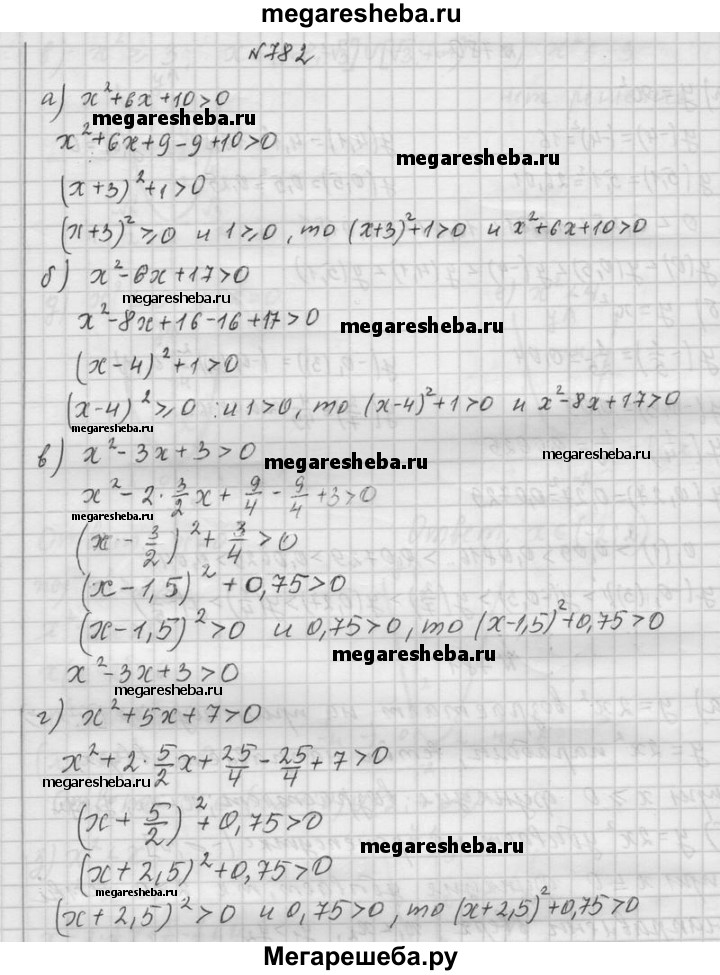 megaresheba.ru
№782
а) x²+6x+10>0
megaresheba.ru
x²+6x+9-9+10>0
megaresheba.ru
(x+3)²+1>0
(x+3)²⩾0 и 1⩾0, то (x+3)²+1>0 и x²+6x+10>0
б) x²-6x+17>0
megaresheba.ru
x²-8x+16-16+17>0
megaresheba.ru
(x-4)²+1>0
(x-4)²⩾0 и 1>0, то (x-4)²+1>0 и x²-8x+17>0
megaresheba.ru
в) x²-3x+3>0
megaresheba.ru
megaresheba.ru
x²-2·3/2x+9/4-9/4+3>0
megaresheba.ru
(x-3/2)²+3/4>0
(x-1,5)²+0,75>0
(x-1,5)²>0 и 0,75>0, то (x-1,5)²+0,75>0
megaresheba.ru
x²-3x+3>0
megaresheba.ru
г) x²+5x+7>0
x²+2·5/2x+25/4-25/4+7>0
megaresheba.ru
(x+5/2)²+0,75>0
megaresheba.ru
(x+2,5)²+0,75>0
megaresheba.ru
(x+2,5)²>0 и 0,75>0, то (x+2,5)²+0,75>0
Мегарешеба.ру